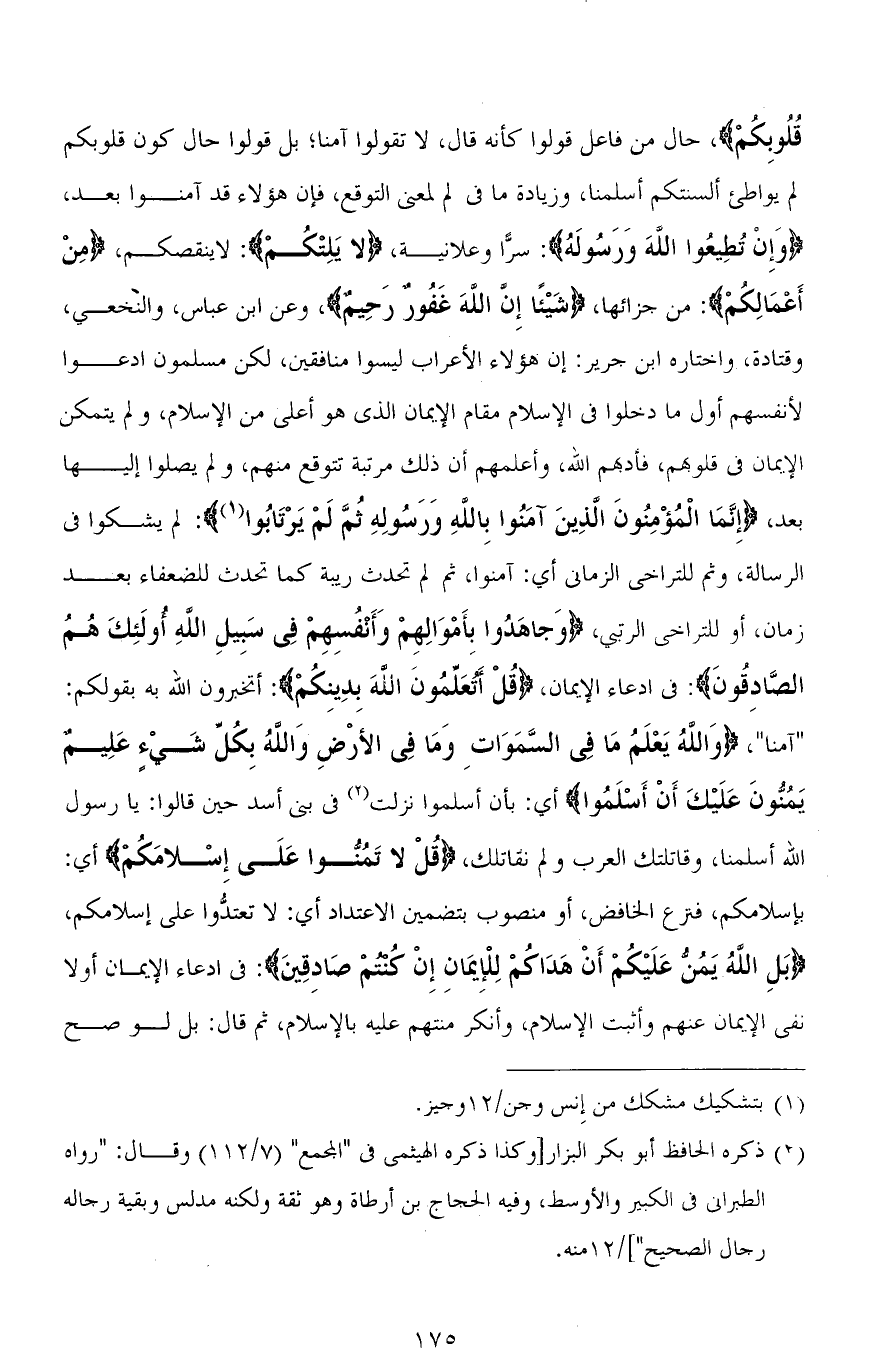 قُلُوبِكُمْ﴾، حال من فاعل قولوا كأنه قال، لا تقولوا آمنا؛ بل قولوا حال كون قلوبكم
لم يواطئ ألسنتكم أسلمنا، وزيادة ما فى لم لمعنى التوقع، فإن هؤلاء قد آمنـــوا بعـــد،
﴿وَإِنْ تُطِيعُوا اللَّهَ وَرَسُولَهُ﴾: سرًّا وعلانيـــة، ﴿لا يَلِتْكُـــمْ﴾: لاينقصكـــم، ﴿مِنْ
أَعْمَالِكُمْ﴾: من جزائها، ﴿شَيْئًا إِنَّ اللَّهَ غَفُورٌ رَحِيمٌ﴾، وعن ابن عباس، والنخعـــي،
وقتادة، واختاره ابن جرير: إن هؤلاء الأعراب ليسوا منافقين، لكن مسلمون ادعـــوا
لأنفسهم أول ما دخلوا فى الإسلام مقام الإيمان الذى هو أعلى من الإسلام، و لم يتمكن
الإيمان فى قلوبهم، فأدبهم الله، وأعلمهم أن ذلك مرتبة تتوقع منهم، و لم يصلوا إليـــها
بعد، ﴿إِنَّمَا الْمُؤْمِنُونَ الَّذِينَ آمَنُوا بِاللَّهِ وَرَسُولِهِ ثُمَّ لَمْ يَرْتَابُوا(١)﴾: لم يشـــكوا فى
الرسالة، وثم للتراخى الزمانى أي: آمنوا، ثم لم تحدث ريبة كما تحدث للضعفاء بعـــد
زمان، أو للتراخى الرتبي، ﴿وَجاهَدُوا بِأَمْوَالِهِمْ وَأَنْفُسِهِمْ فِى سَبِيلِ اللَّهِ أُولَئِكَ هُـمُ
الصَّادِقُونَ﴾: فى ادعاء الإيمان، ﴿قُلْ أَتُعَلِّمُونَ اللَّهَ بِدِينِكُمْ﴾: أتخبرون الله به بقولكم:
"آمنا"، ﴿وَاللَّهُ يَعْلَمُ مَا فِى السَّمَوَاتِ وَمَا فِى الأَرْضِ وَاللَّهُ بِكُلِّ شَـــيْءٍ عَلِيـــمٌ
يَمُنُّونَ عَلَيْكَ أَنْ أَسْلَمُوا﴾ أي: بأن أسلموا نزلت(٢) فى بنى أسد حين قالوا: يا رسول
الله أسلمنا، وقاتلتك العرب و لم نقاتلك، ﴿قُلْ لا تَمُنُّـــوا عَلَـــى إِسْـــلامَكُمْ﴾ أي:
بإسلامكم، فنزع الخافض، أو منصوب بتضمين الاعتداد أي: لا تعتدُّوا على إسلامكم،
﴿بَلِ اللَّهُ يَمُنُّ عَلَيْكُمْ أَنْ هَدَاكُمْ لِلْإِيمَانِ إِنْ كُنْتُمْ صَادِقِينَ﴾: فى ادعاء الإيمـــان أولا
نفى الإيمان عنهم وأثبت الإسلام، وأنكر منتهم عليه بالإسلام، ثم قال: بل لـــو صـــح
(١) بتشكيك مشكك من إنس وجن/١٢وجيز.
(٢) ذكره الحافظ أبو بكر البزار[وكذا ذكره الهيثمى فى "المجمع" (١١٢/٧) وقـــال: "رواه
الطبرانى فى الكبير والأوسط، وفيه الحجاج بن أرطاة وهو ثقة ولكنه مدلس وبقية رجاله
رجال الصحيح"]/١٢منه.
١٧٥